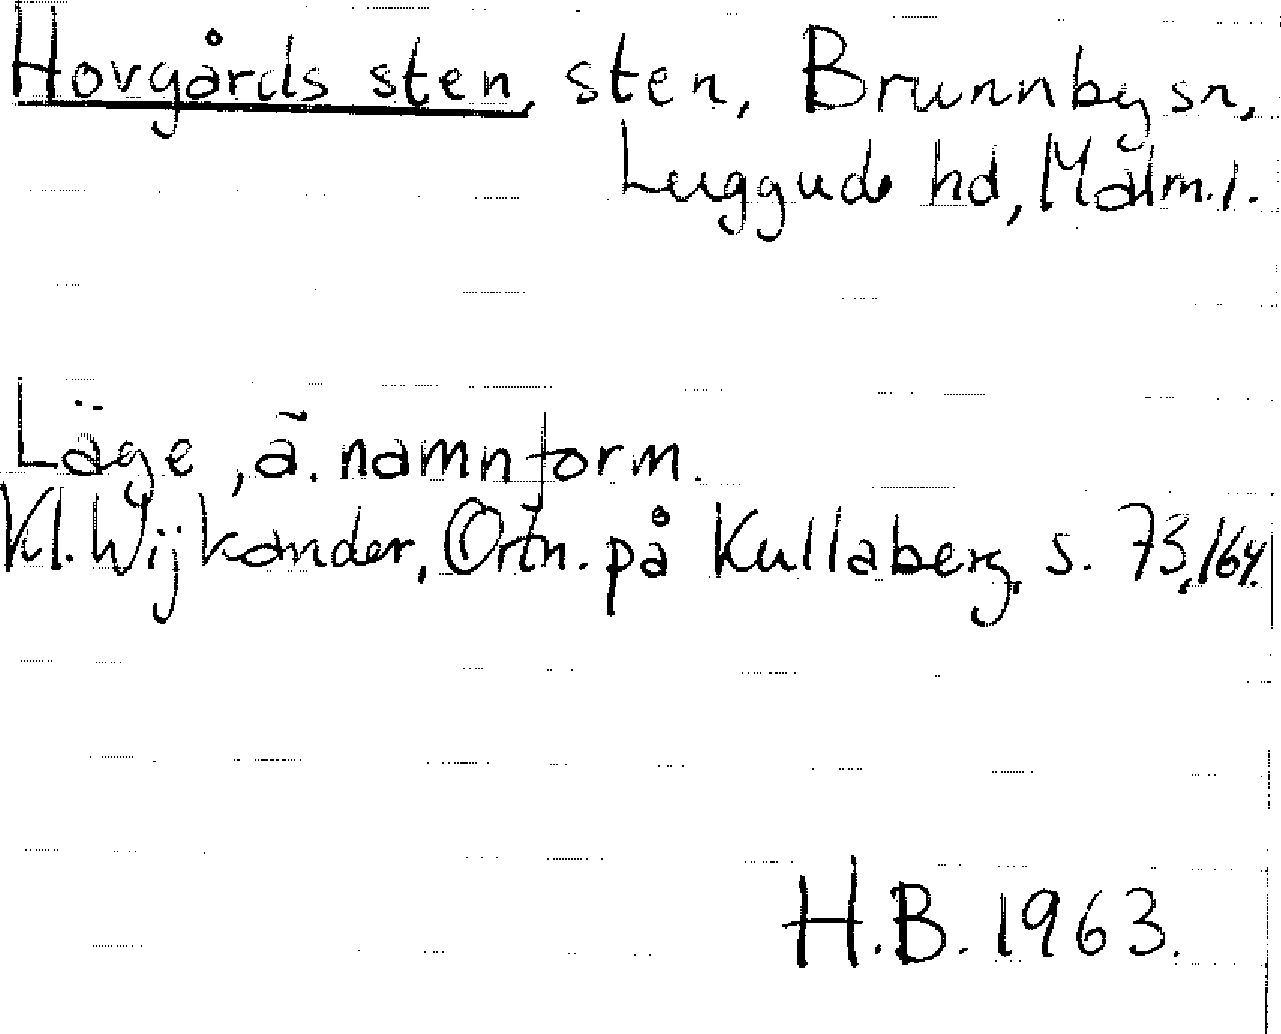 Hovgårds sten, sten, Brunnby sn,
Luggude hd, Malm. l.
Läge, ä. namnform.
Kl. Wijkander, Ortn. på Kullaberg, s. 73, 164.
H.B. 1963.